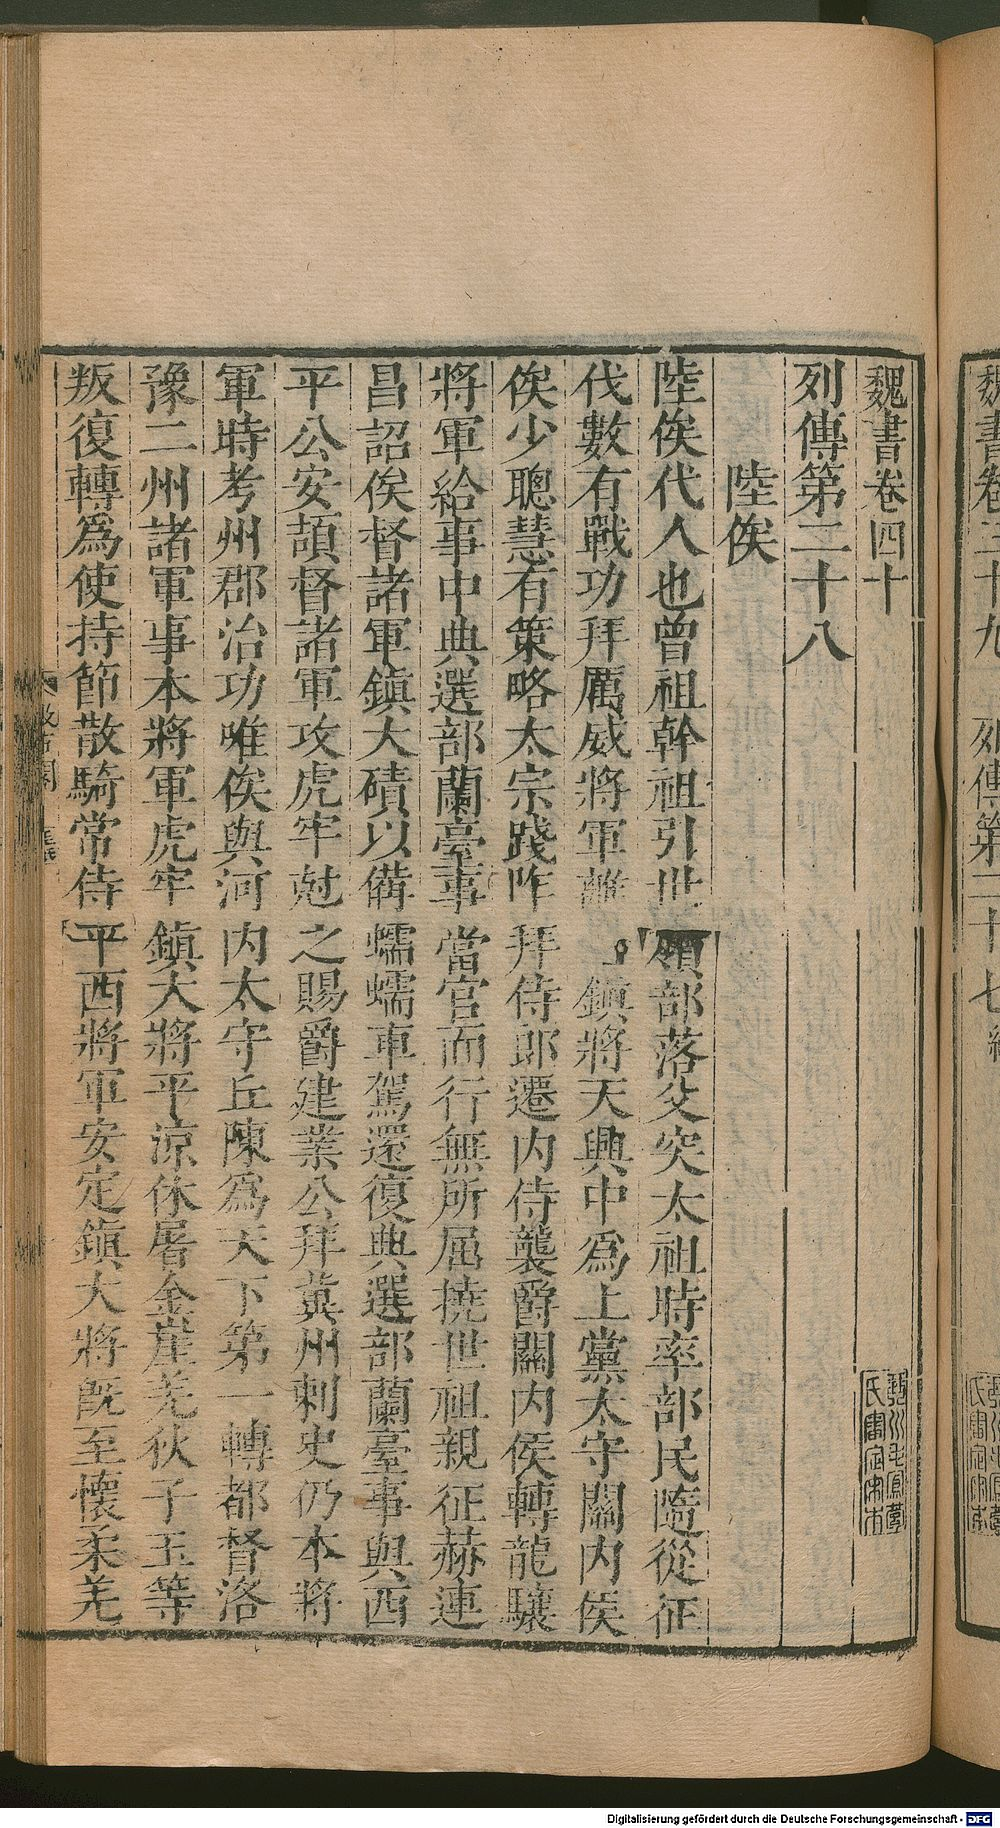 魏書卷四十
列傳第二十八
陸俟
陸俟代人也曾祖幹祖引世領部落父突太祖時率部民隨從征
伐數有戰功拜厲威將軍離鎮將天興中爲上黨太守關内侯
俟少聰慧有策略太宗踐阼拜侍郎遷内侍襲爵關内侯轉龍驤
將軍給事中典選部蘭臺事當官而行無所屈撓世祖親征赫連
昌詔俟督諸軍鎮大磧以備蠕蠕車駕還復典選部蘭臺事與西
平公安頡督諸軍攻虎牢尅之賜爵建業公拜冀州刺史仍本將
軍時考州郡治功唯俟與河内太守丘陳爲天下第一轉都督洛
豫二州諸軍事本將軍虎牢鎮大將平涼休屠金崖羌狄子玉等
叛復轉爲使持節散騎常侍平西將軍安定鎮大將旣至懷柔羌
魏書卷三十九 列傳第二十七
Digitalisierung gefördert durch die Deutsche Forschungsgemeinschaft - DFG